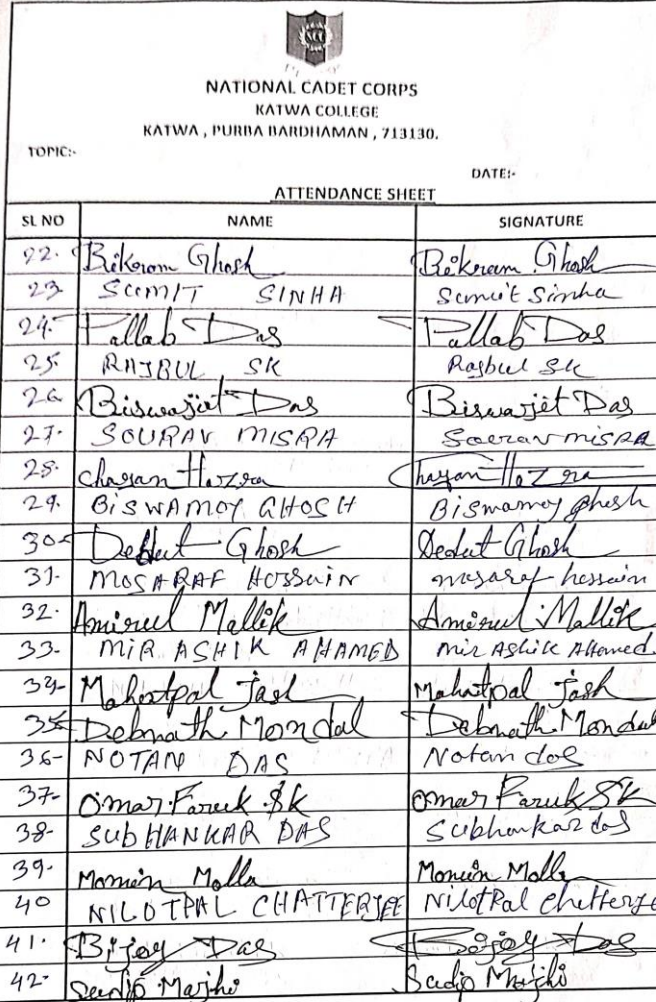 NCC
NATIONAL CADET CORPS
KATWA COLLEGE
KATWA , PURBA BARDHAMAN , 713130.
TOPIC:-
DATE:-
ATTENDANCE SHEET
SL NO NAME SIGNATURE
22. Bikram Ghosh Bikram Ghosh
23. SUMIT SINHA Sumit Sinha
24. Pallab Das Pallab Das
25. RAJBUL SK Rajbul SK
26. Biswajit Das Biswajit Das
27. SOURAV MISRA Sourav misra
28. Chayan Hazra Chayan Hazra
29. BISWAMOY GHOSH Biswamoy ghosh
30. Ghosh Ghosh
31. MOSARAF HOSSAIN mosaraf hossain
32. Amirul Mallik Amirul Mallik
33. MIR ASHIK AHAMED Mir Ashik Ahamed
34. Jash Jash
35. Debnath Mondal Debnath Mondal
36. NOTAN DAS Notan das
37. Omar Faruk SK Omar Faruk SK
38. SUBHANKAR DAS Subhankar das
39. Momin Molla Momin Molla
40 NILOTPAL CHATTERJEE Nilotpal Chatterje
41. Bijoy Das Bijoy Das
42. Sudip Majhi Sudip Majhi